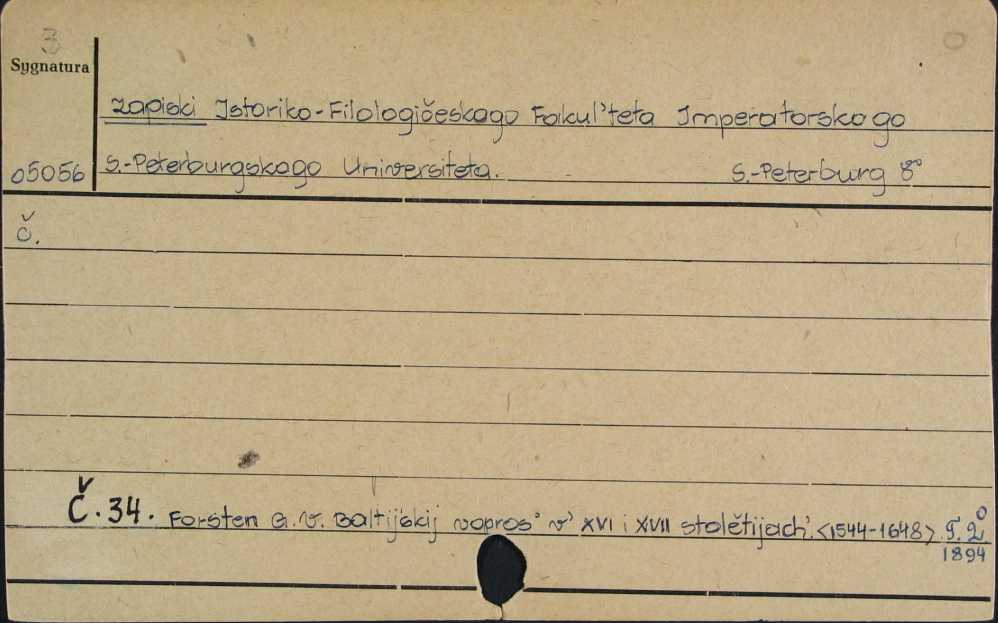 3
Sygnatura
Zapiski Istoriko-Filologičeskago Fakul'teta Imperatorskago
05056 S.-Peterburgskago Universiteta. S.-Peterburg 8°
č.
Č. 34. Forsten G.V. Baltijskij vopros' v' XVI i XVII stolětijach' <1544-1648> T. 2°
1894